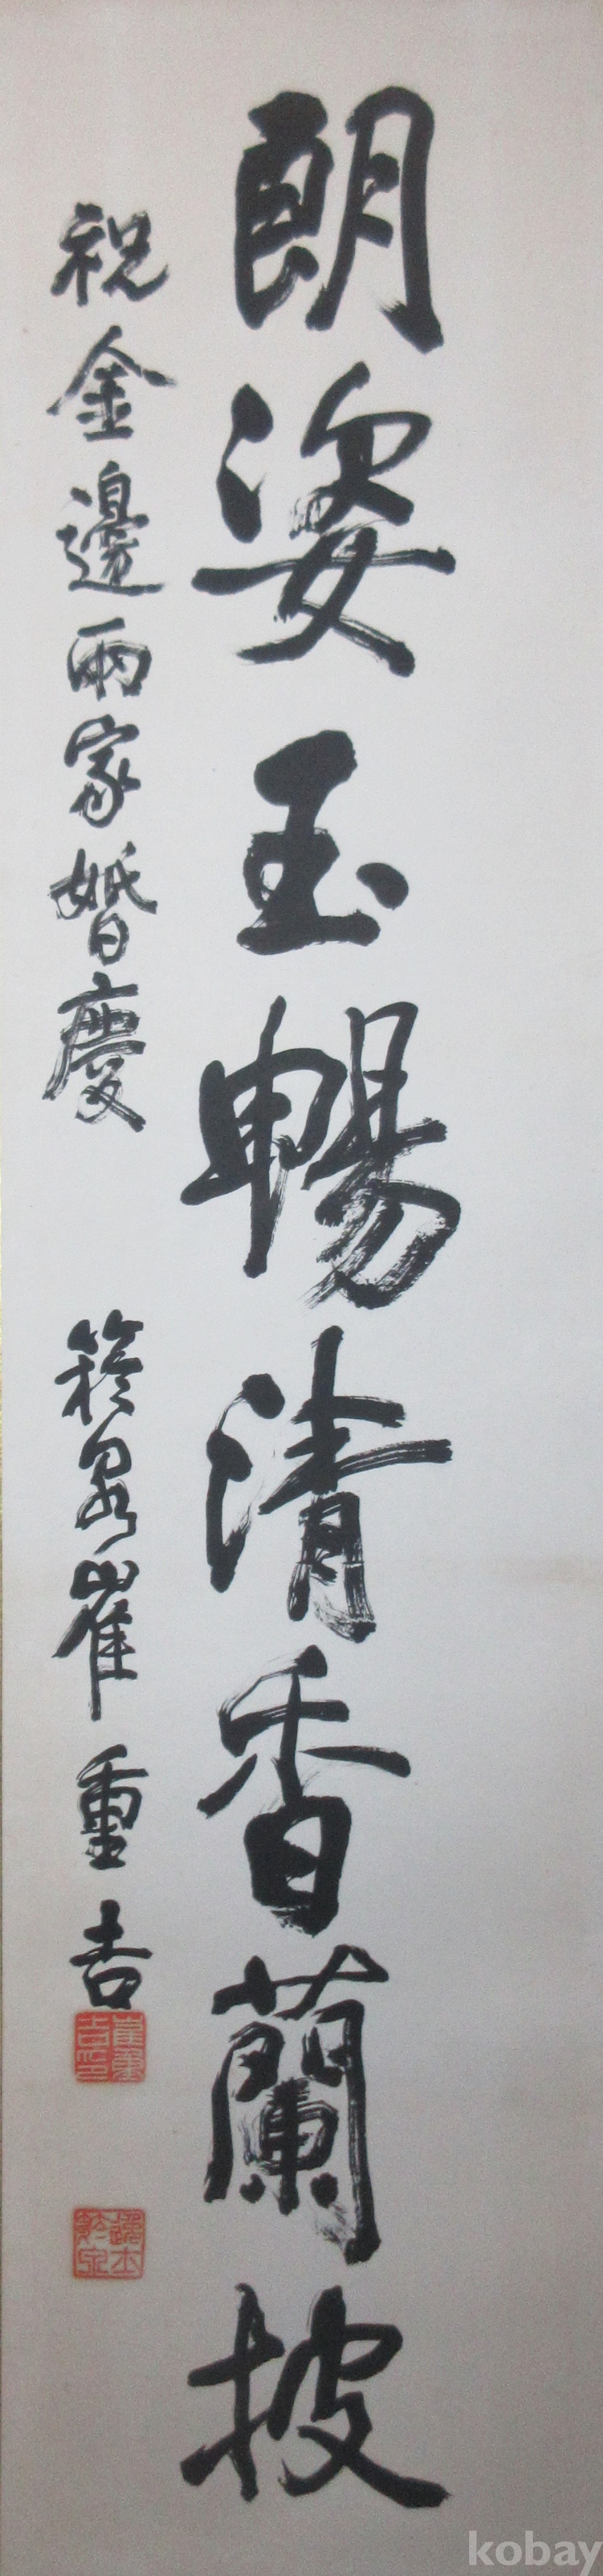 朗姿玉暢清香蘭披
祝金邊兩家婚慶 篵泉崔重吉
kobay